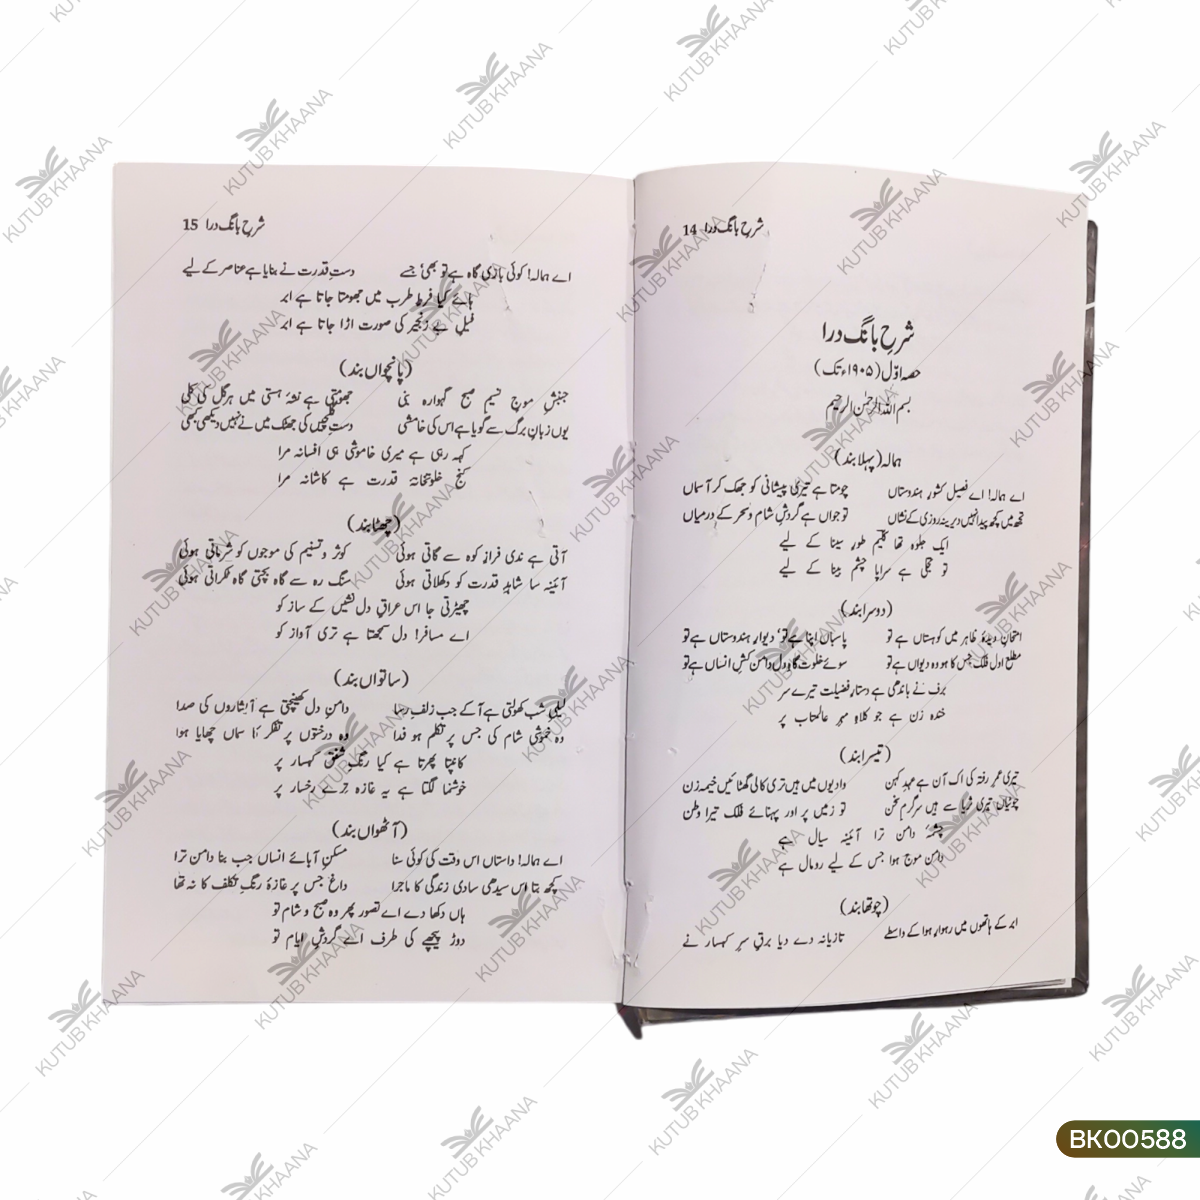 شرحِ بانگ درا 14
شرحِ بانگ درا
حصہ اوّل (۱۹۰۵ء تک)
بسم اللہ الرحمٰن الرحیم
ہمالہ (پہلا بند)
اے ہمالہ! اے فصیل کشورِ ہندوستاں چومتا ہے تیری پیشانی کو جھک کر آسماں
تجھ میں کچھ پیدا نہیں دیرینہ روزی کے نشاں تو جواں ہے گردشِ شام و سحر کے درمیاں
ایک جلوہ تھا کلیمِ طورِ سینا کے لیے
تو تجلی ہے سراپا چشم بینا کے لیے
(دوسرا بند)
امتحانِ دیدۂ ظاہر میں کوہستاں ہے تو پاسباں اپنا ہے تو، دیوارِ ہندوستاں ہے تو
مطلع اول فلک جس کا ہو وہ دیواں ہے تو سوئے خلوت گاہِ دل دامن کش انساں ہے تو
برف نے باندھی ہے دستارِ فضیلت تیرے سر
خندہ زن ہے جو کلاہِ مہرِ عالمتاب پر
(تیسرا بند)
تیری عمرِ رفتہ کی اک آن ہے عہدِ کہن وادیوں میں ہیں تری کالی گھٹائیں خیمہ زن
چوٹیاں تیری ثریا سے ہیں سرگرم سخن تو زمیں پر اور پہنائے فلک تیرا وطن
چشمۂ دامن ترا آئینۂ سیال ہے
دامنِ موجِ ہوا جس کے لیے رومال ہے
(چوتھا بند)
ابر کے ہاتھوں میں رہوارِ ہوا کے واسطے تازیانہ دے دیا برقِ سرِ کہسار نے
شرحِ بانگ درا 15
اے ہمالہ! کوئی بازی گاہ ہے تو بھی، جسے دستِ قدرت نے بنایا ہے عناصر کے لیے
ہائے کیا فرطِ طرب میں جھومتا جاتا ہے ابر
فیلِ بے زنجیر کی صورت اڑا جاتا ہے ابر
(پانچواں بند)
جنبشِ موجِ نسیمِ صبح گہوارہ بنی جھومتی ہے نشۂ ہستی میں ہر گل کی کلی
یوں زبانِ برگ سے گویا ہے اس کی خامشی دستِ گلچیں کی جھٹک میں نے نہیں دیکھی کبھی
کہہ رہی ہے میری خاموشی ہی افسانہ مرا
کنجِ خلوتخانۂ قدرت ہے کاشانہ مرا
(چھٹا بند)
آتی ہے ندی فرازِ کوہ سے گاتی ہوئی کوثر و تسنیم کی موجوں کو شرماتی ہوئی
آئینہ سا شاہدِ قدرت کو دکھلاتی ہوئی سنگِ رہ سے گاہ بچتی گاہ ٹکراتی ہوئی
چھیڑتی جا اس عراقِ دل نشیں کے ساز کو
اے مسافر! دل سمجھتا ہے تری آواز کو
(ساتواں بند)
لیلیٰ شب کھولتی ہے آ کے جب زلفِ رسا دامنِ دل کھینچتی ہے آبشاروں کی صدا
وہ خموشی شام کی جس پر تکلم ہو فدا وہ درختوں پر تفکر کا سماں چھایا ہوا
کانپتا پھرتا ہے کیا رنگِ شفق کہسار پر
خوشنما لگتا ہے یہ غازہ ترے رخسار پر
(آٹھواں بند)
اے ہمالہ! داستاں اس وقت کی کوئی سنا مسکنِ آبائے انساں جب بنا دامن ترا
کچھ بتا اس سیدھی سادی زندگی کا ماجرا داغ جس پر غازۂ رنگِ تکلف کا نہ تھا
ہاں دکھا دے اے تصور پھر وہ صبح و شام تو
دوڑ پیچھے کی طرف اے گردشِ ایام تو
KUTUB KHAANA
BK00588